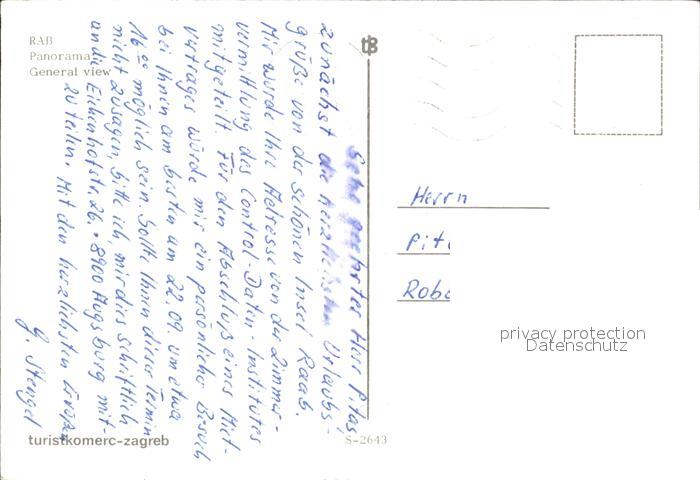 RAB
Panorama
General view
Sehr geehrter Herr Pitas
zunächst die herzlichsten Urlaubs-
grüße von der schönen Insel Raab.
Mir wurde Ihre Adresse von der Zimmer-
vermittlung des Control-Daten-Institutes
mitgeteilt. Für den Abschluß eines Miet-
vertrages würde mir ein persönlicher Besuch
bei Ihnen am besten am 22.09. um etwa
16 00 möglich sein. Sollte Ihnen dieser Termin
nicht zusagen, bitte ich, mir dies schriftlich
an die Eichenhofstr. 26 • 8900 Augsburg mit-
zuteilen. Mit den herzlichsten Grüßen
G. Stengel
Herrn
Pit
Robe
privacy protection
Datenschutz
turistkomerc-zagreb
S-2643